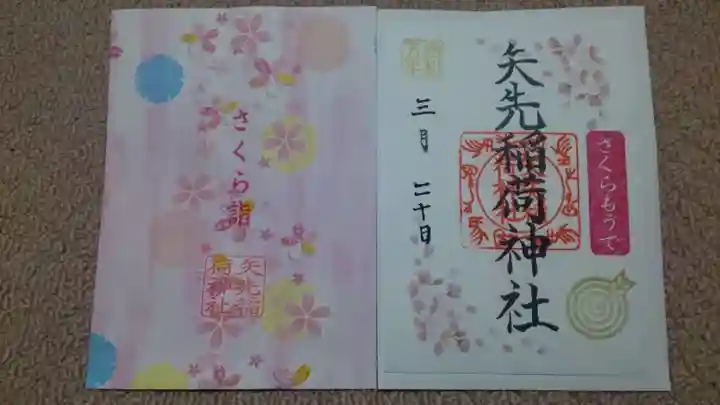 さくら詣
矢先稲
荷神社
さくらもうで
矢先稲荷神社
三月 二十日